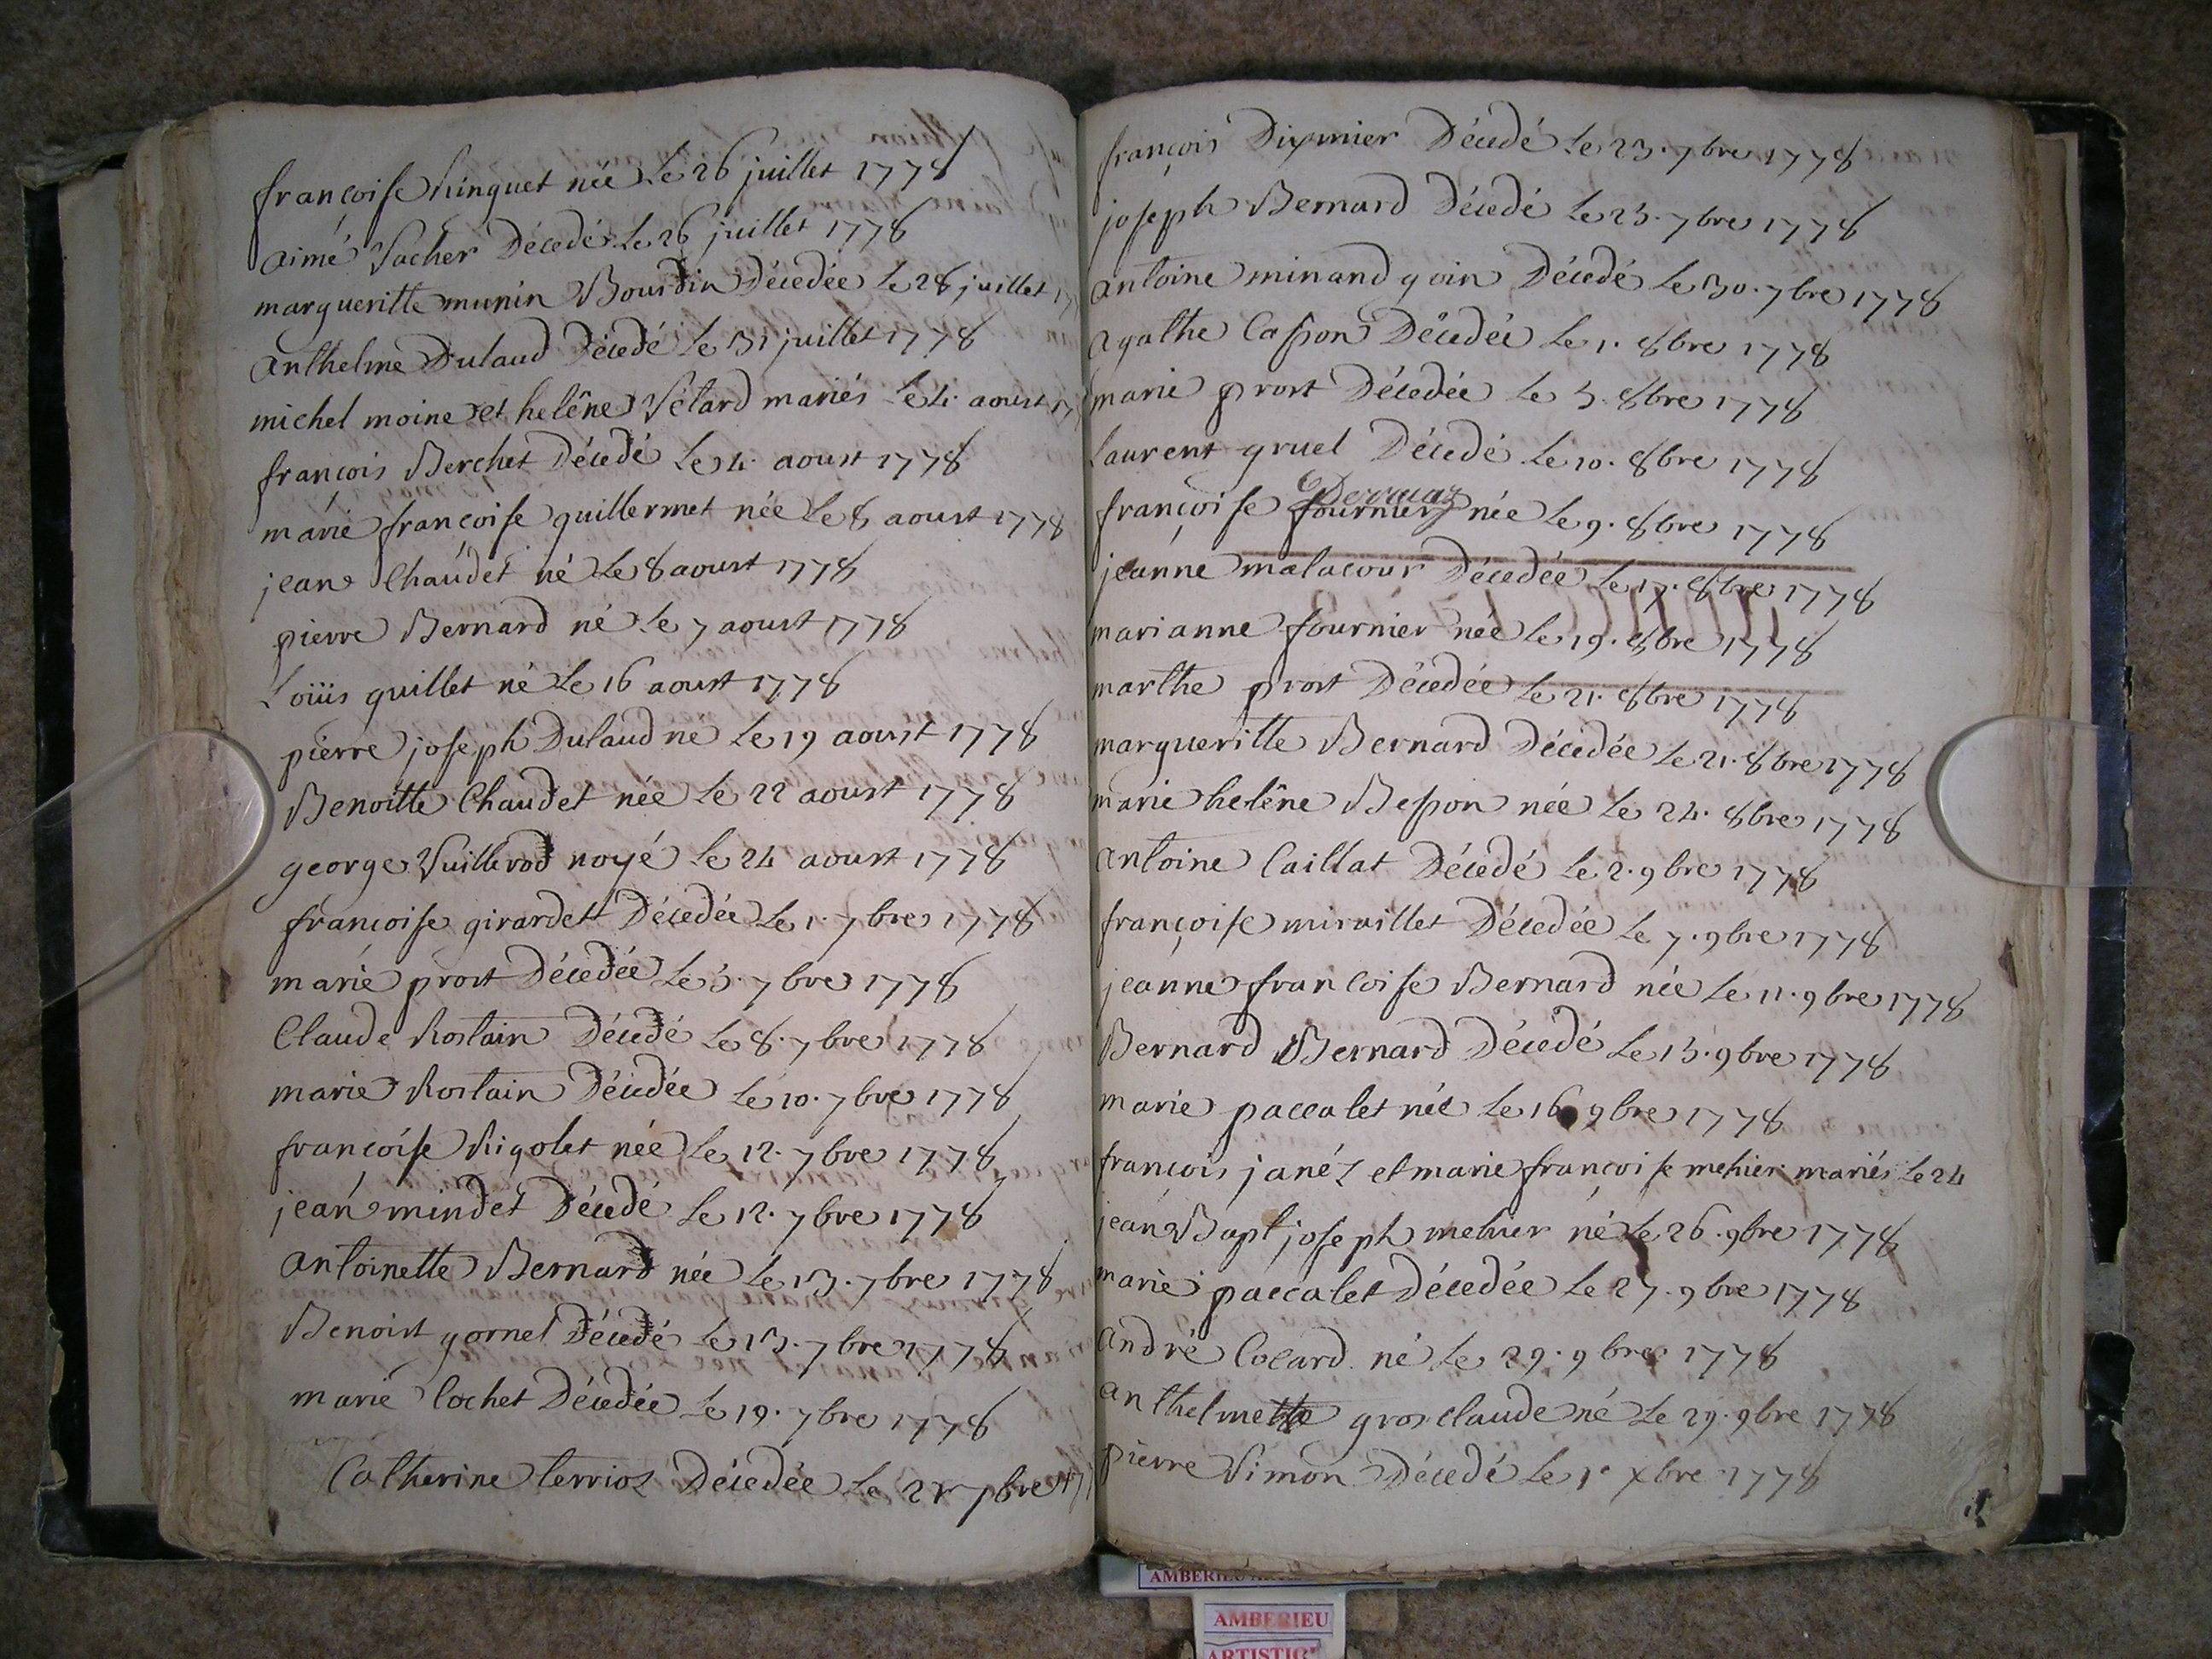 françoise hinguet née Le 26 juillet 1778
aimé Vacher Décedé Le 26 juillet 1778
margueritte munin Bourdin Décedée Le 28 juillet
anthelme Dulaud Décedé Le 31 juillet 1778
michel moine et helêne Vétard mariés Le 4. aoust
françois Berchet Décedé Le 4. aoust 1778
marie françoise guillermet née Le 8 aoust 1778
jean Chaudet né Le 8 aoust 1778
pierre Bernard né Le 7 aoust 1778
Loüis guillet né Le 16 aoust 1778
pierre joseph Dulaud ne Le 19 aoust 1778
Benoitte Chaudet née Le 22 aoust 1778
george Vuillerod noyé Le 24 aoust 1778
françoise girardet Décedée Le 1. 7bre 1778
marie prost Décedée Le 3. 7bre 1778
Claude Rostain Décedé Le 8. 7bre 1778
marie Rostain Décedée Le 10. 7bre 1778
françoise Rigolet née Le 12. 7bre 1778
jean mindet Décedé Le 12. 7bre 1778
antoinette Bernard née Le 13. 7bre 1778
Benoist gornet Décedé Le 13. 7bre 1778
marie Cochet Décedée Le 19. 7bre 1778
Catherine terrioz Décedée Le 21 7bre
françois Dixmier Décedé Le 23. 7bre 1778
joseph Bernard Décedé Le 23. 7bre 1778
antoine minand goin Décedé Le 30. 7bre 1778
agathe Casson Décedée Le 1. 8bre 1778
marie prost Décedée Le 3. 8bre 1778
Laurent gruel Décedé Le 10. 8bre 1778
françoise fournier née Le 9. 8bre 1778
jeanne malacour Décedée Le 17. 8bre 1778
marianne fournier née Le 19. 8bre 1778
marthe prost Décedée Le 21. 8bre 1778
margueritte Bernard Décedée Le 21. 8bre 1778
marie helêne Besson née Le 24. 8bre 1778
antoine Caillat Décedé Le 2. 9bre 1778
françoise miraillet Décedée Le 7. 9bre 1778
jeanne françoise Bernard née Le 11. 9bre 1778
Bernard Bernard Décedé Le 13. 9bre 1778
marie paccalet née Le 16 9bre 1778
françois janéz et marie françoise mehier mariés Le 24
jean Bapt joseph mehier né Le 26. 9bre 1778
marie paccalet Décedée Le 27. 9bre 1778
andré Cocard né Le 29. 9bre 1778
anthelme grosclaude né Le 29. 9bre 1778
pierre Simon Décedé Le 1e xbre 1778
AMBERIEU
AMBERIEU
ARTISTIC